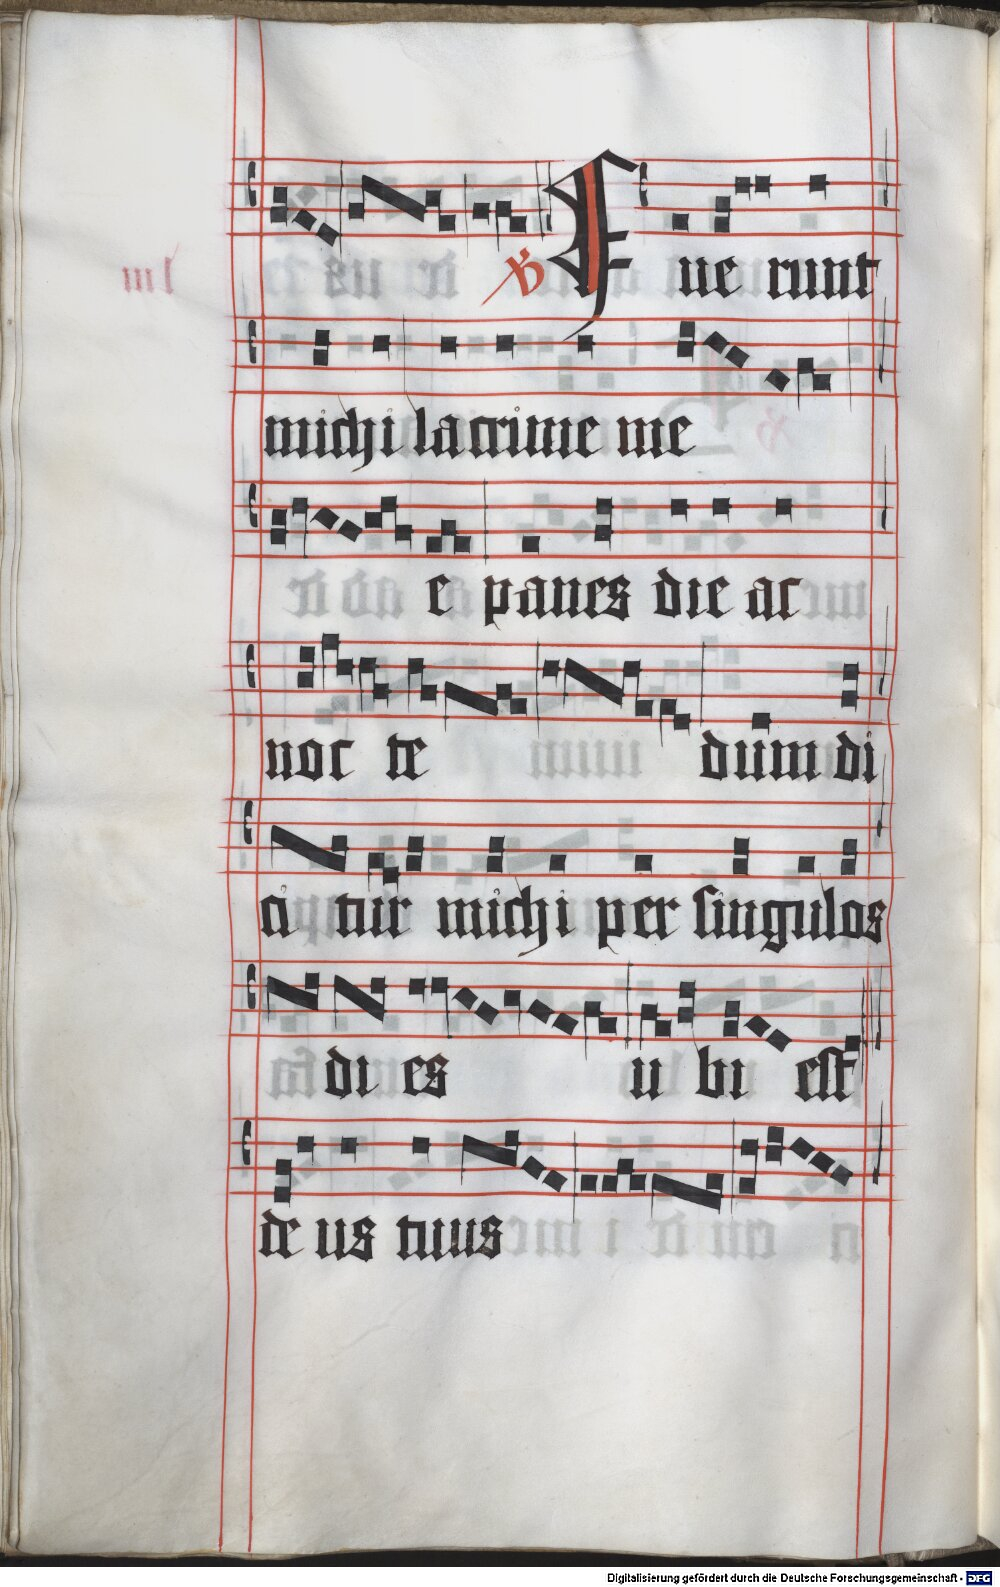 ℣ Fue runt
michi lacrime me
e panes die ac
noc te dum di
ci tur michi per singulos
di es u bi est
de us tuus
Digitalisierung gefördert durch die Deutsche Forschungsgemeinschaft - DFG